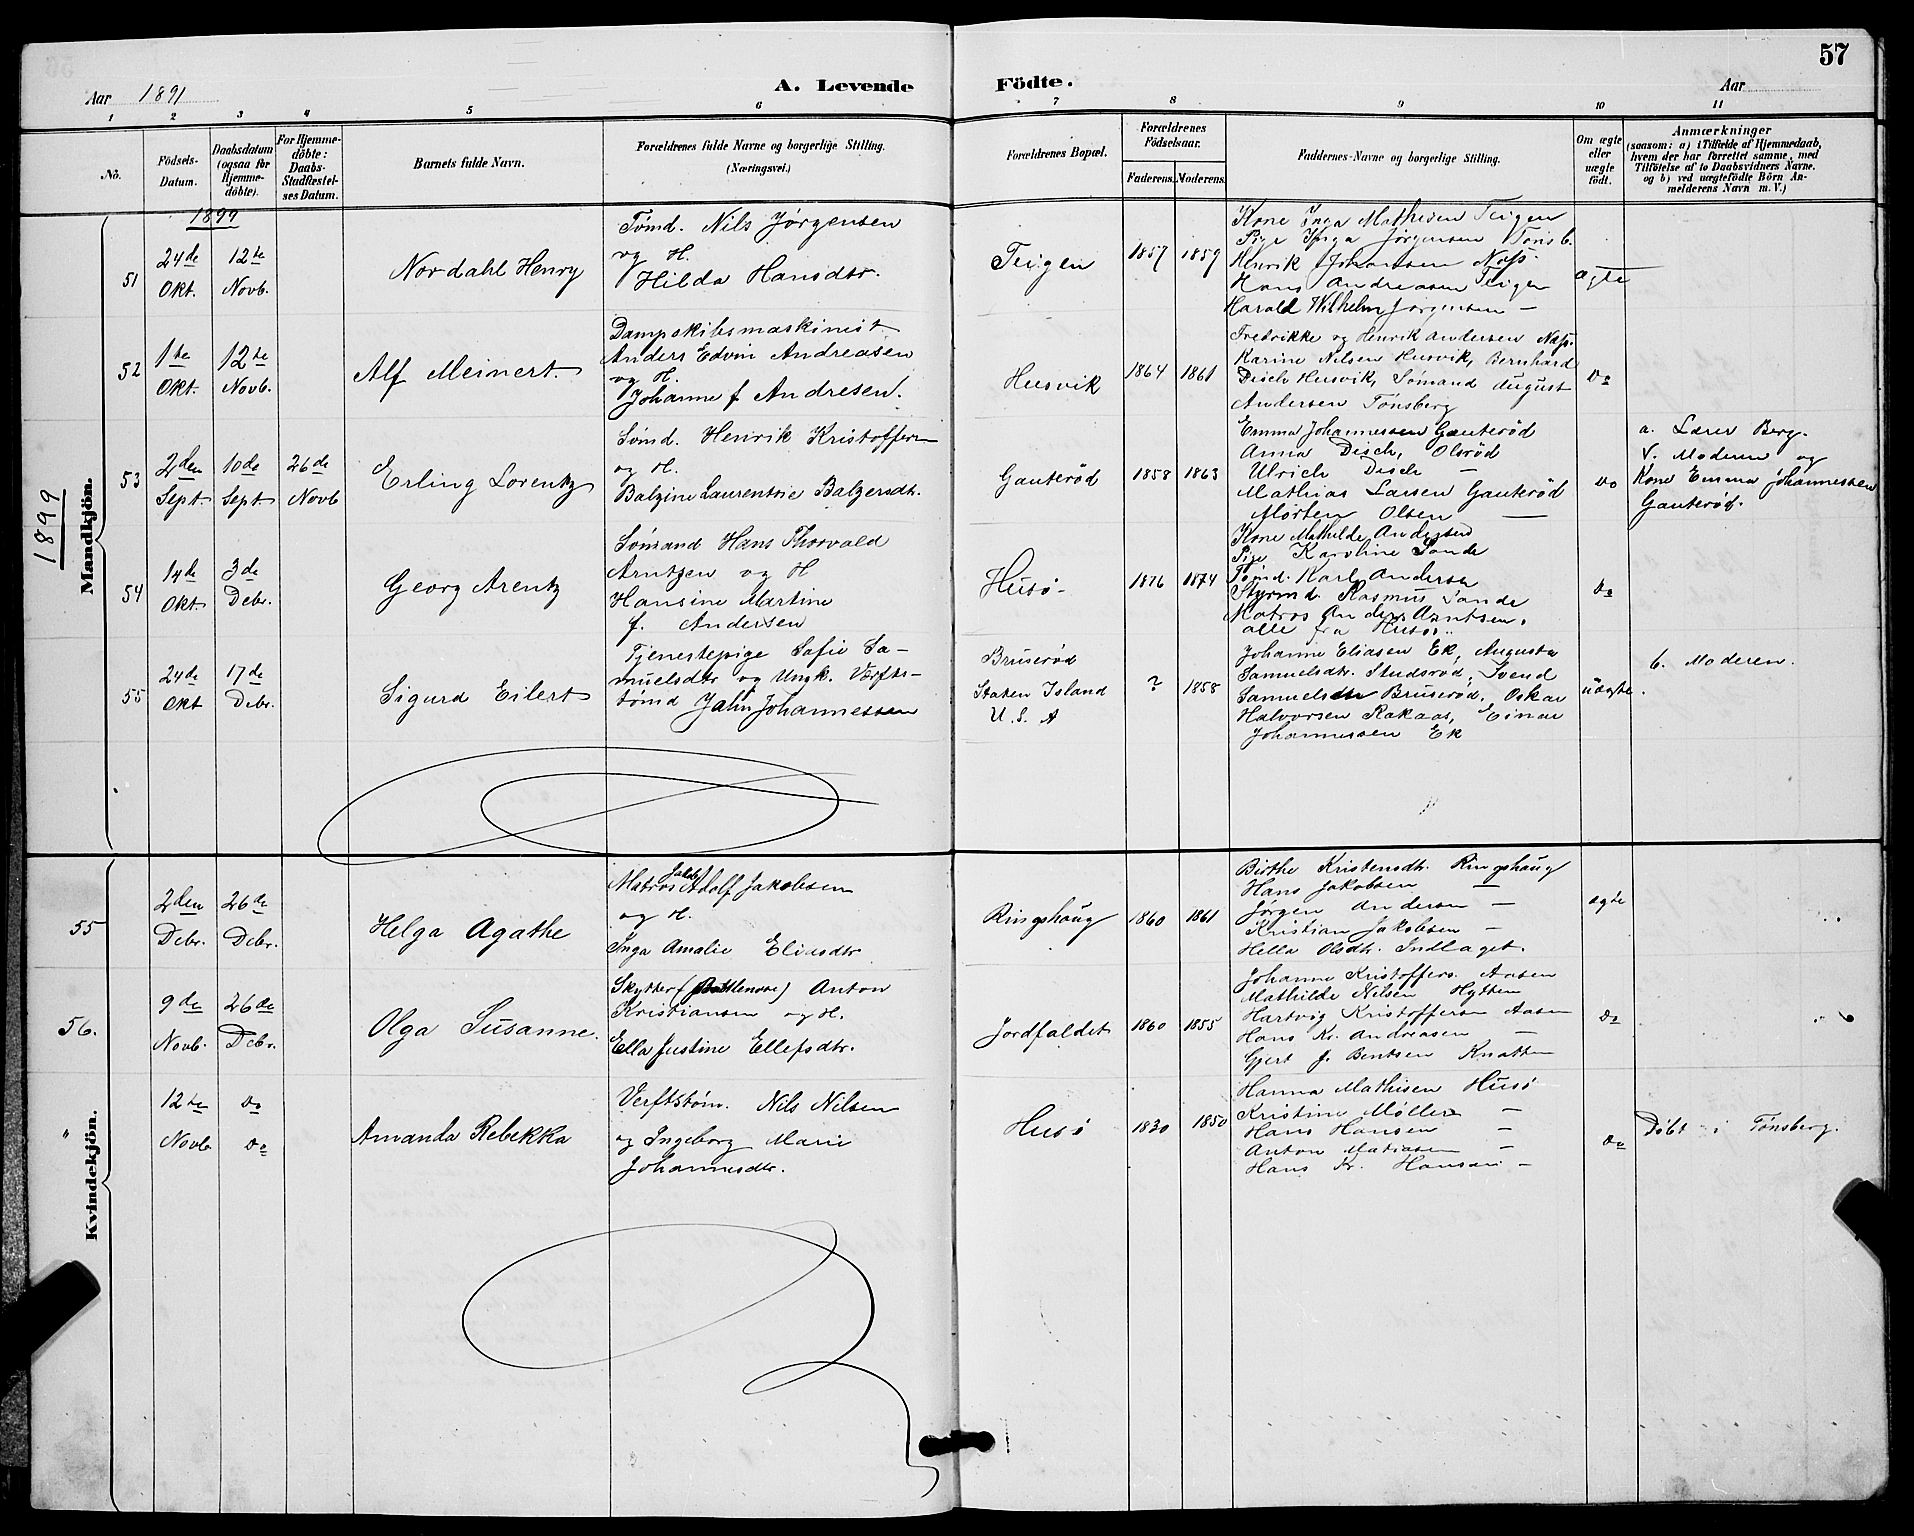 57
Aar 1891
A. Levende Födte.
Aar
1 2 3 4 5 6 7 8 9 10 11
No.
Födsels-
Datum.
Daabsdatum
(ogsaa for
Hjemme-
döbte).
For Hjemme-
döbte:
Daabs-
Stadfæstel-
ses Datum.
Barnets fulde Navn.
Forældrenes fulde Navne og borgerlige Stilling.
(Næringsvei.)
Forældrenes Bopæl.
Forældrenes
Födselsaar.
Faderens. Moderens.
Faddernes-Navne og borgerlige Stilling.
Om ægte
eller
uægte
födt.
Anmærkninger
(saasom: a) i Tilfælde af Hjemmedaab,
hvem der har forrettet samme, med
Tilföielse af to Daabsvidners Navne.
og b) ved uægtefödte Börn An-
melderens Navn m. V.)
1899
Mandkjön.
1899
51
24de
Okt.
12te
Novb.
Nordahl Henry
Tømd. Nils Jørgensen
og H.
Hilda Hansdtr.
Teigen
1857
1859
Kone Inga Mathisen Teigen
Pige Inga Jørgensen Tønsb.
Henrik Johansen Næs.
Hans Andreasen Teigen
Harald Wilhelm Jørgensen —
ægte
52
1te
Okt.
12te
Novb.
Alf Meinert.
Dampskibsmaskinist
Anders Edvin Andreasen
og H.
Johanne f. Andresen.
Husvik
1864
1861
Fredrikke og Henrik Andersen Næs.
Karine Nilsen Husvik, Bernhard
Disch Husvik, Sømand August
Andersen Tønsberg
Do
53
2den
Sept.
10de
Sept.
26de
Novb
Erling Lorentz
Sømd. Henrik Kristoffersen
og H.
Balzine Laurentsie Balzersdt.
Gauterød
1858
1863
Emma Johannessen Gauterød
Anna Disch, Olsrød
Ulrich Disch —
Mathias Larsen Gauterød
Morten Olsen —
Do
a. Lærer Berg.
V. Moderen og
Kone Emma Johannessen
Gauterød.
54
14de
Okt.
3de
Debr.
Georg Arentz
Sømand Hans Thorvald
Arntzen og H
Hansine Martine
f. Andersen
Husø
1876
1874
Kone Mathilde Andersen
Pige Karoline Sande
Tømd. Karl Andersen
Styrmd. Rasmus Sande
Matros Anders Arntsen,
alle fra Husø.
Do
55
24de
Okt
17de
Debr.
Sigurd Eilert
Tjenestepige Sofie Sa-
muelsdtr og Ungk. Værfts-
tømd Jahn Johannessen
Bruserød
Staten Island
U. S. A
?
1858
Johanne Eliasen Ek, Augusta
Samuelsdtr. Studsrød, Svend
Samuelsen Bruserød, Oskar
Halvorsen Rakaas, Einar
Johannessen Ek
uægte.
b. Moderen.
Kvindekjön.
55
2den
Debr.
26de
Debr.
Helga Agathe
Matros Adolf Jakobsen
og H.
Inga Amalie Eliasdtr
Ringshaug
1860
1861
Birthe Kristensdtr. Ringshaug
Hans Jakobsen —
Jørgen Andersen —
Kristian Jakobsen —
Hella Olsdtr. Indlaget.
ægte
56.
9de
Novb.
26de
Debr.
Olga Susanne.
Skytter (Bottlenose) Anton
Kristiansen og H.
Ella Justine Ellefsdtr.
Jordfaldet
1860
1855
Johanne Kristoffers. Aasen
Mathilde Nilsen Hytten
Hartvig Kristoffersen Aasen
Hans Kr. Andreasen —
Gjert J. Bentsen Knatten
Do
"
12te
Novb.
Do
Do
Amanda Rebekka
Verftstøm. Nils Nilsen
og Ingeborg Marie
Johannesdtr.
Husø
1830
1850
Hanna Mathisen Husø
Kristine Møller —
Hans Hansen —
Anton Matiasen —
Hans Kr. Hansen —
Do
Døbt i Tønsberg.